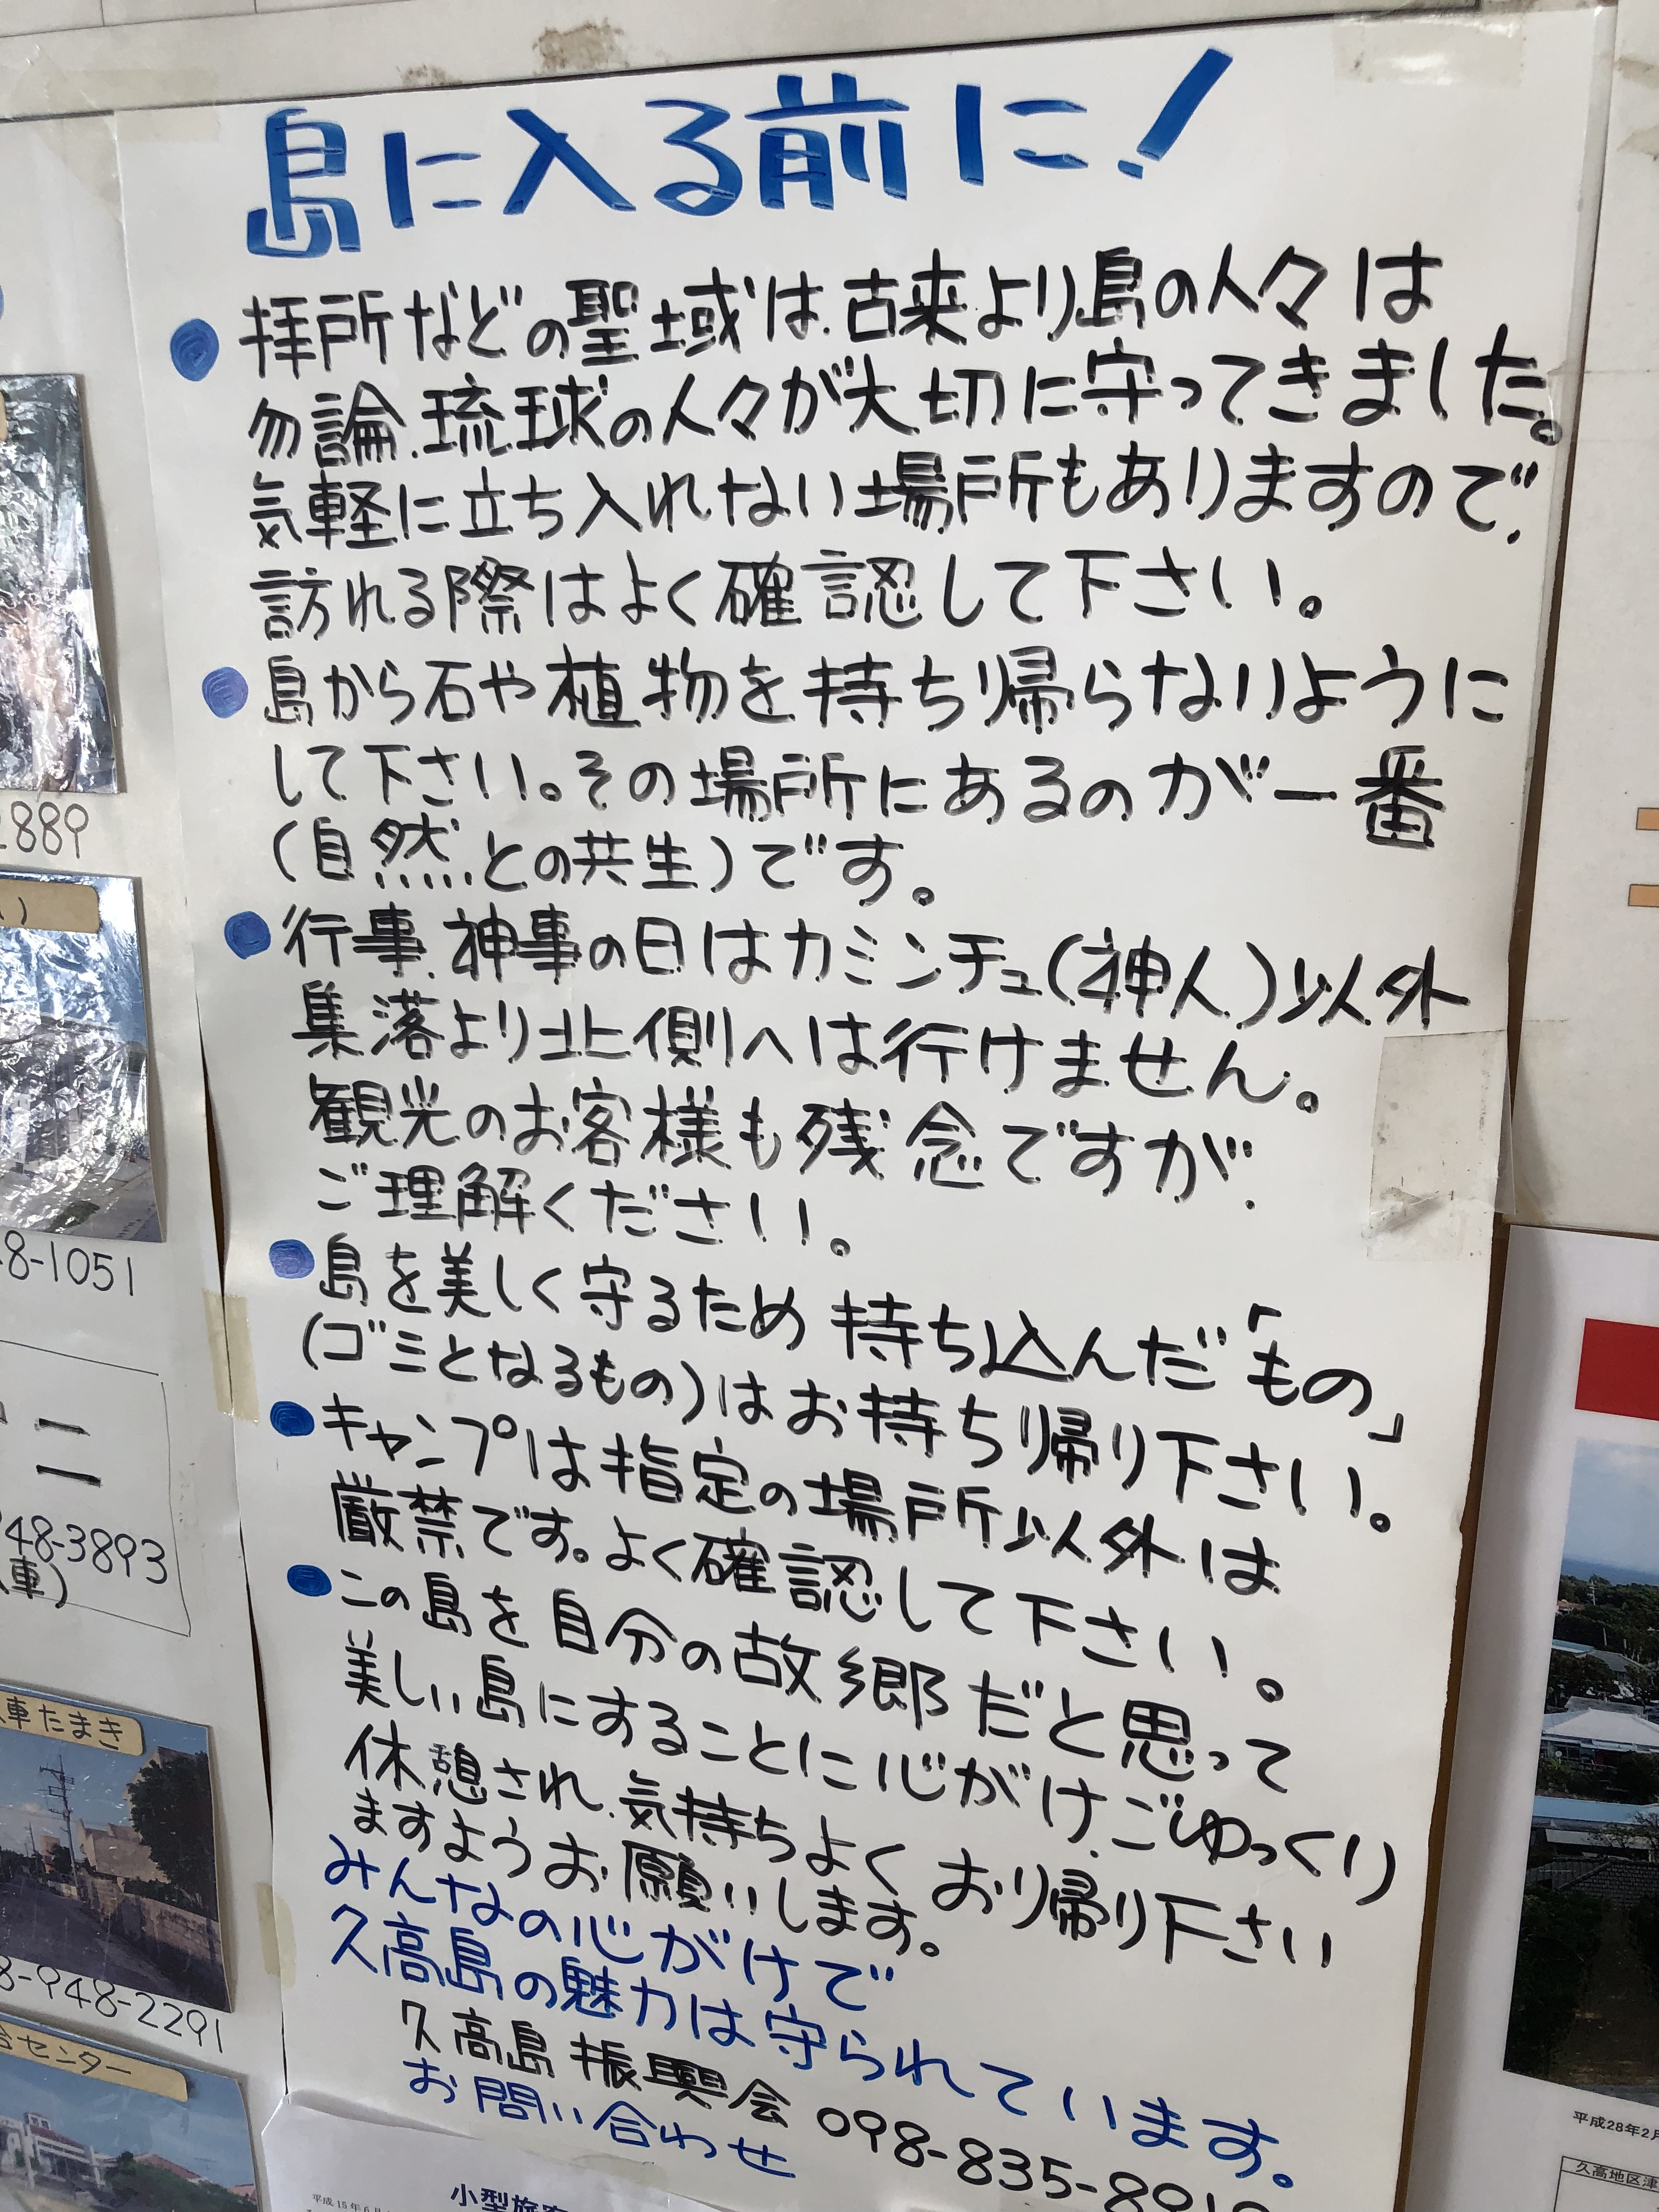 島に入る前に!
●拝所などの聖域は、古来より島の人々は
勿論、琉球の人々が大切に守ってきました。
気軽に立ち入れない場所もありますので、
訪れる際はよく確認して下さい。
●島から石や植物を持ち帰らないように
して下さい。その場所にあるのが一番
(自然との共生)です。
●行事、神事の日はカミンチュ(神人)以外
集落より北側へは行けません。
観光のお客様も残念ですが、
ご理解ください。
●島を美しく守るため持ち込んだ「もの」
(ゴミとなるもの)はお持ち帰り下さい。
●キャンプは指定の場所以外は
厳禁です。よく確認して下さい。
●この島を自分の故郷だと思って
美しい島にすることに心がけ、ごゆっくり
休憩され、気持ちよくおり帰り下さい
ますようお願いします。
みんなの心がけで
久高島の魅力は守られています。
久高島振興会 098-835-89
お問い合わせ
889
8-1051
48-3893
車)
車たまき
8-948-2291
合センター
小型旅客
平成15年6月
平成28年2月
久高地区津